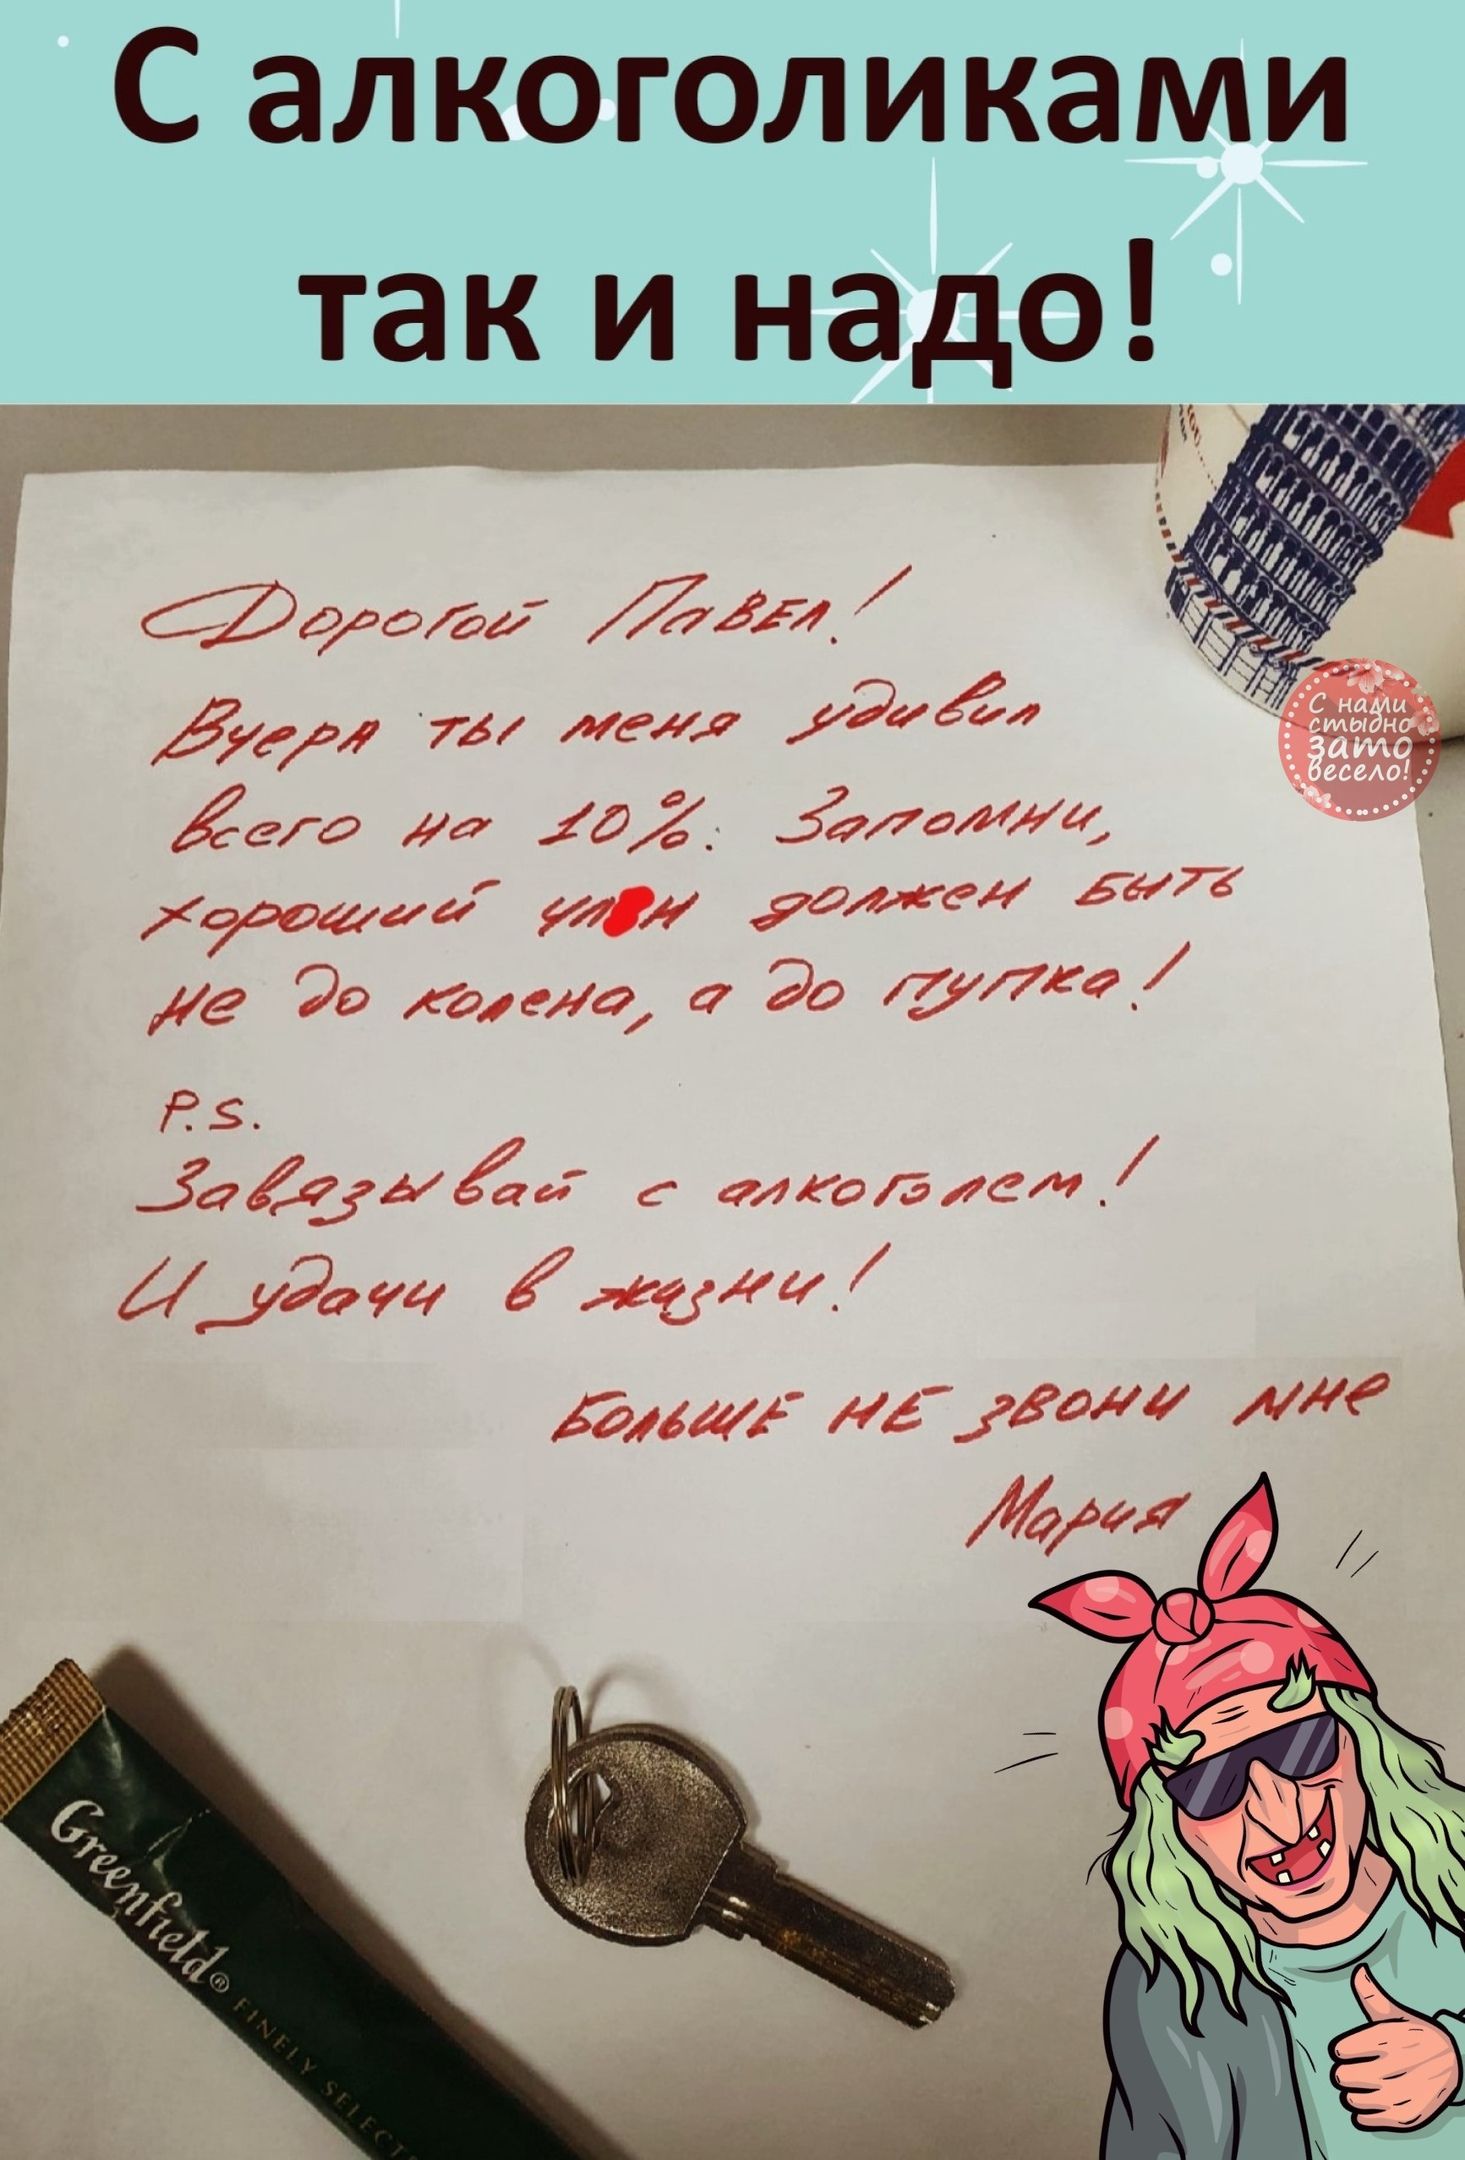 С алкоголиками
так и надо!
Дорогой Павел!
Вчера ты меня удивил
всего на 10%. Запомни,
хороший чл н должен быть
не до колена, а до пупка!
P.S.
Завязывай с алкоголем!
И удачи в жизни!
Больше не звони мне
Мария
С нами
стыдно
зато
весело!
Greenfield®
FINELY SELECT